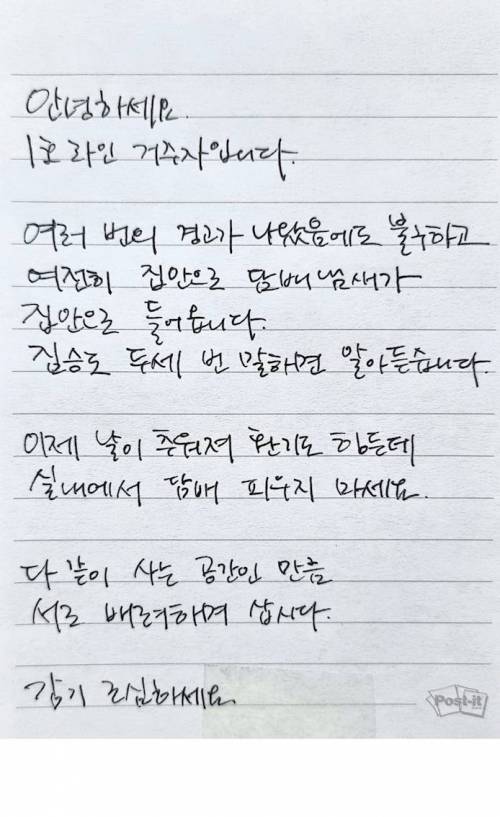 안녕하세요.
1호 라인 거주자입니다.
여러 번의 경고가 나왔음에도 불구하고
여전히 집안으로 담배 냄새가
집안으로 들어옵니다.
짐승도 두세 번 말하면 알아듣습니다.
이제 날이 추워져 환기도 힘든데
실내에서 담배 피우지 마세요.
다 같이 사는 공간인 만큼
서로 배려하며 삽시다.
감기 조심하세요.
Post-it